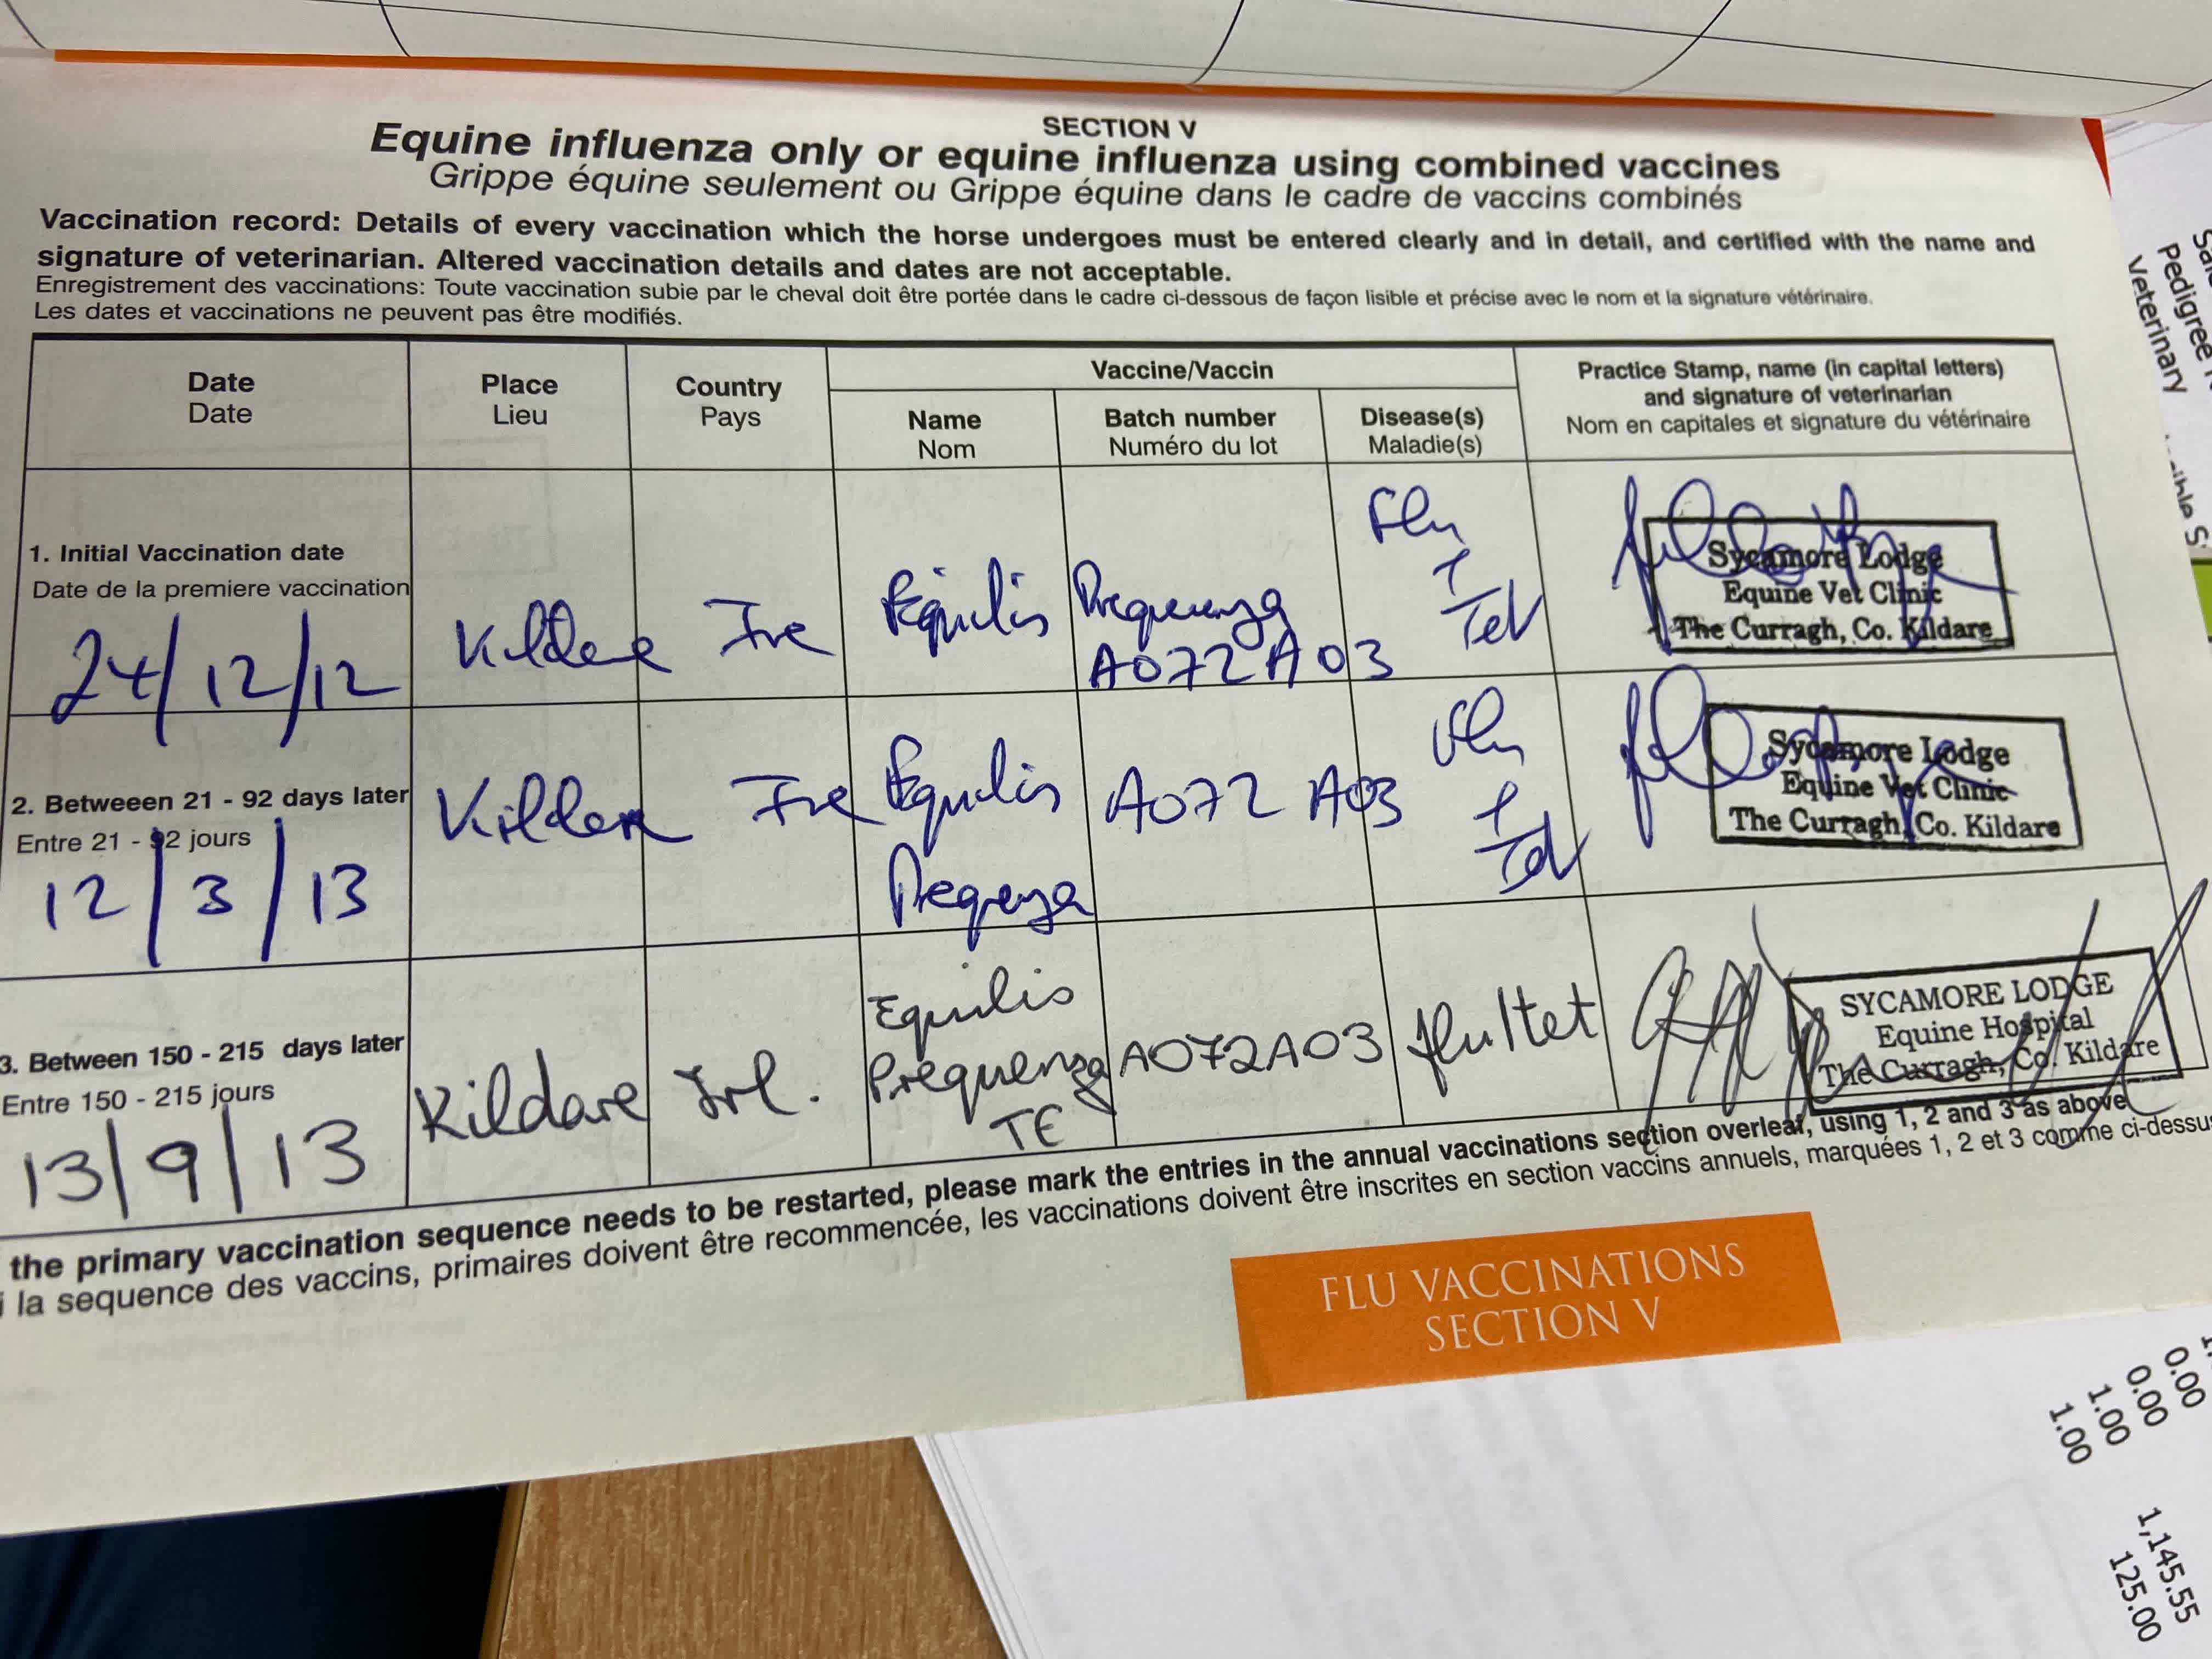 SECTION V
Equine influenza only or equine influenza using combined vaccines
Grippe équine seulement ou Grippe équine dans le cadre de vaccins combinés
Vaccination record: Details of every vaccination which the horse undergoes must be entered clearly and in detail, and certified with the name and
signature of veterinarian. Altered vaccination details and dates are not acceptable.
Enregistrement des vaccinations: Toute vaccination subie par le cheval doit être portée dans le cadre ci-dessous de façon lisible et précise avec le nom et la signature vétérinaire.
Les dates et vaccinations ne peuvent pas être modifiés.
Date
Date
Place
Lieu
Country
Pays
Vaccine/Vaccin
Name
Nom
Batch number
Numéro du lot
Disease(s)
Maladie(s)
Practice Stamp, name (in capital letters)
and signature of veterinarian
Nom en capitales et signature du vétérinaire
1. Initial Vaccination date
Date de la premiere vaccination
24/12/12
Kildare
Ire
Equilis
Prequenza
A072A03
Flu
/
Tet
Sycamore Lodge
Equine Vet Clinic
The Curragh, Co. Kildare
2. Betweeen 21 - 92 days later
Entre 21 - 92 jours
12/3/13
Kildare
Ire
Equilis
Prequenza
A072 A03
Flu
/
Tet
Sycamore Lodge
Equine Vet Clinic
The Curragh, Co. Kildare
3. Between 150 - 215 days later
Entre 150 - 215 jours
13/9/13
Kildare
Irl.
Equilis
Prequenza
TE
A072A03
flu/tet
SYCAMORE LODGE
Equine Hospital
The Curragh, Co. Kildare
the primary vaccination sequence needs to be restarted, please mark the entries in the annual vaccinations section overleaf, using 1, 2 and 3 as above
la sequence des vaccins, primaires doivent être recommencée, les vaccinations doivent être inscrites en section vaccins annuels, marquées 1, 2 et 3 comme ci-dessus
FLU VACCINATIONS
SECTION V
Pedigree
Veterinary
0.00
0.00
1.00
1.00
1,145.55
125.00